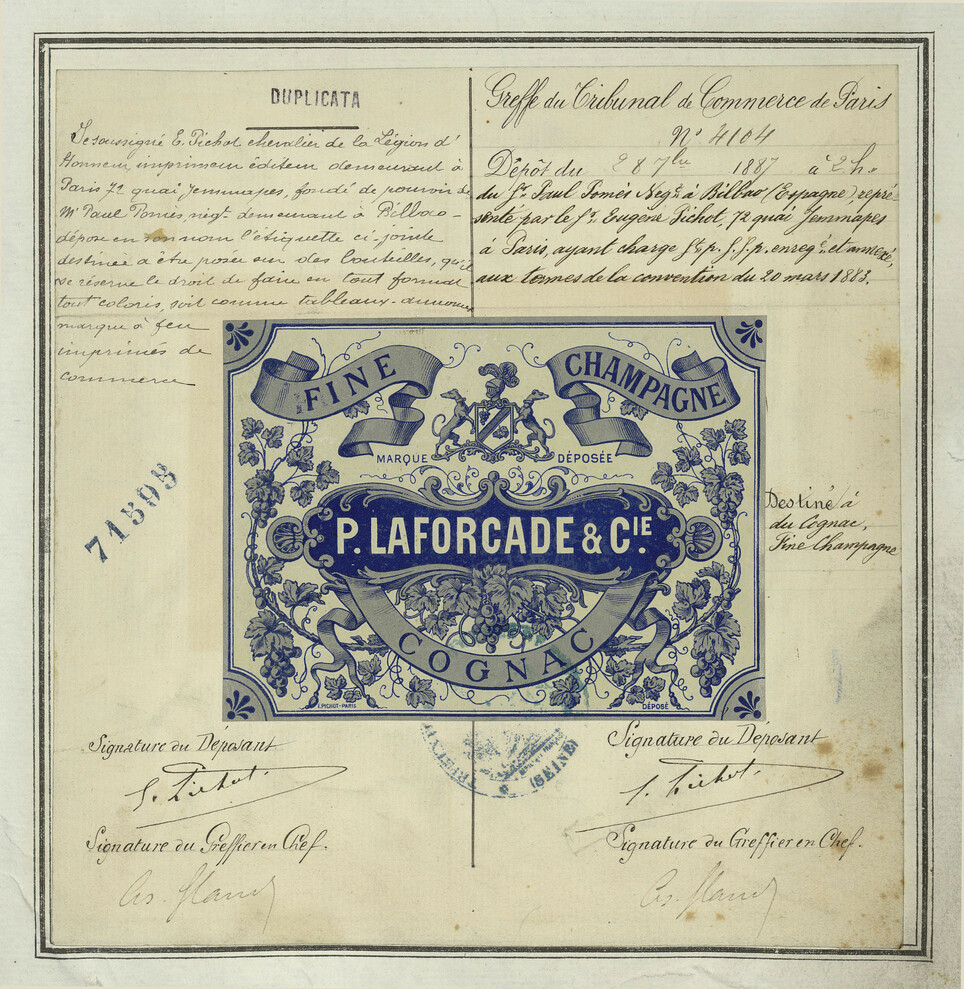 DUPLICATA
Je soussigné E. Pichot chevalier de la Légion d'
Honneur, imprimeur éditeur demeurant à
Paris 72 quai Jemmapes, fondé de pouvoir de
Mr Paul Pomès, négt. demeurant à Bilbao –
dépose en son nom l'étiquette ci-jointe
destinée a être poser sur des bouteilles, qu'il
se réserve le droit de faire en tout format
tout coloris, soit comme tableaux-annonces
marque à feu
imprimés de
commerce
Greffe du Tribunal de Commerce de Paris
N° 4104
Dépôt du 28 7bre 1887 à 2 h.
du Sr. Paul Pomès Négt. à Bilbao (Espagne), repré
senté par le Sr. Eugène Pichot, 72 quai Jemmapes
à Paris, ayant charge s.p. s.s.p. enreg. et annexé,
aux termes de la convention du 20 mars 1883.
FINE CHAMPAGNE
MARQUE DÉPOSÉE
P. LAFORCADE & CIE.
COGNAC
E. PICHOT-PARIS
DÉPOSÉ
71598
Destiné à
du Cognac,
Fine Champagne
(SEINE)
Signature du Déposant
E. Pichot.
Signature du Greffier en Chef.
Signature du Déposant
E. Pichot.
Signature du Greffier en Chef.